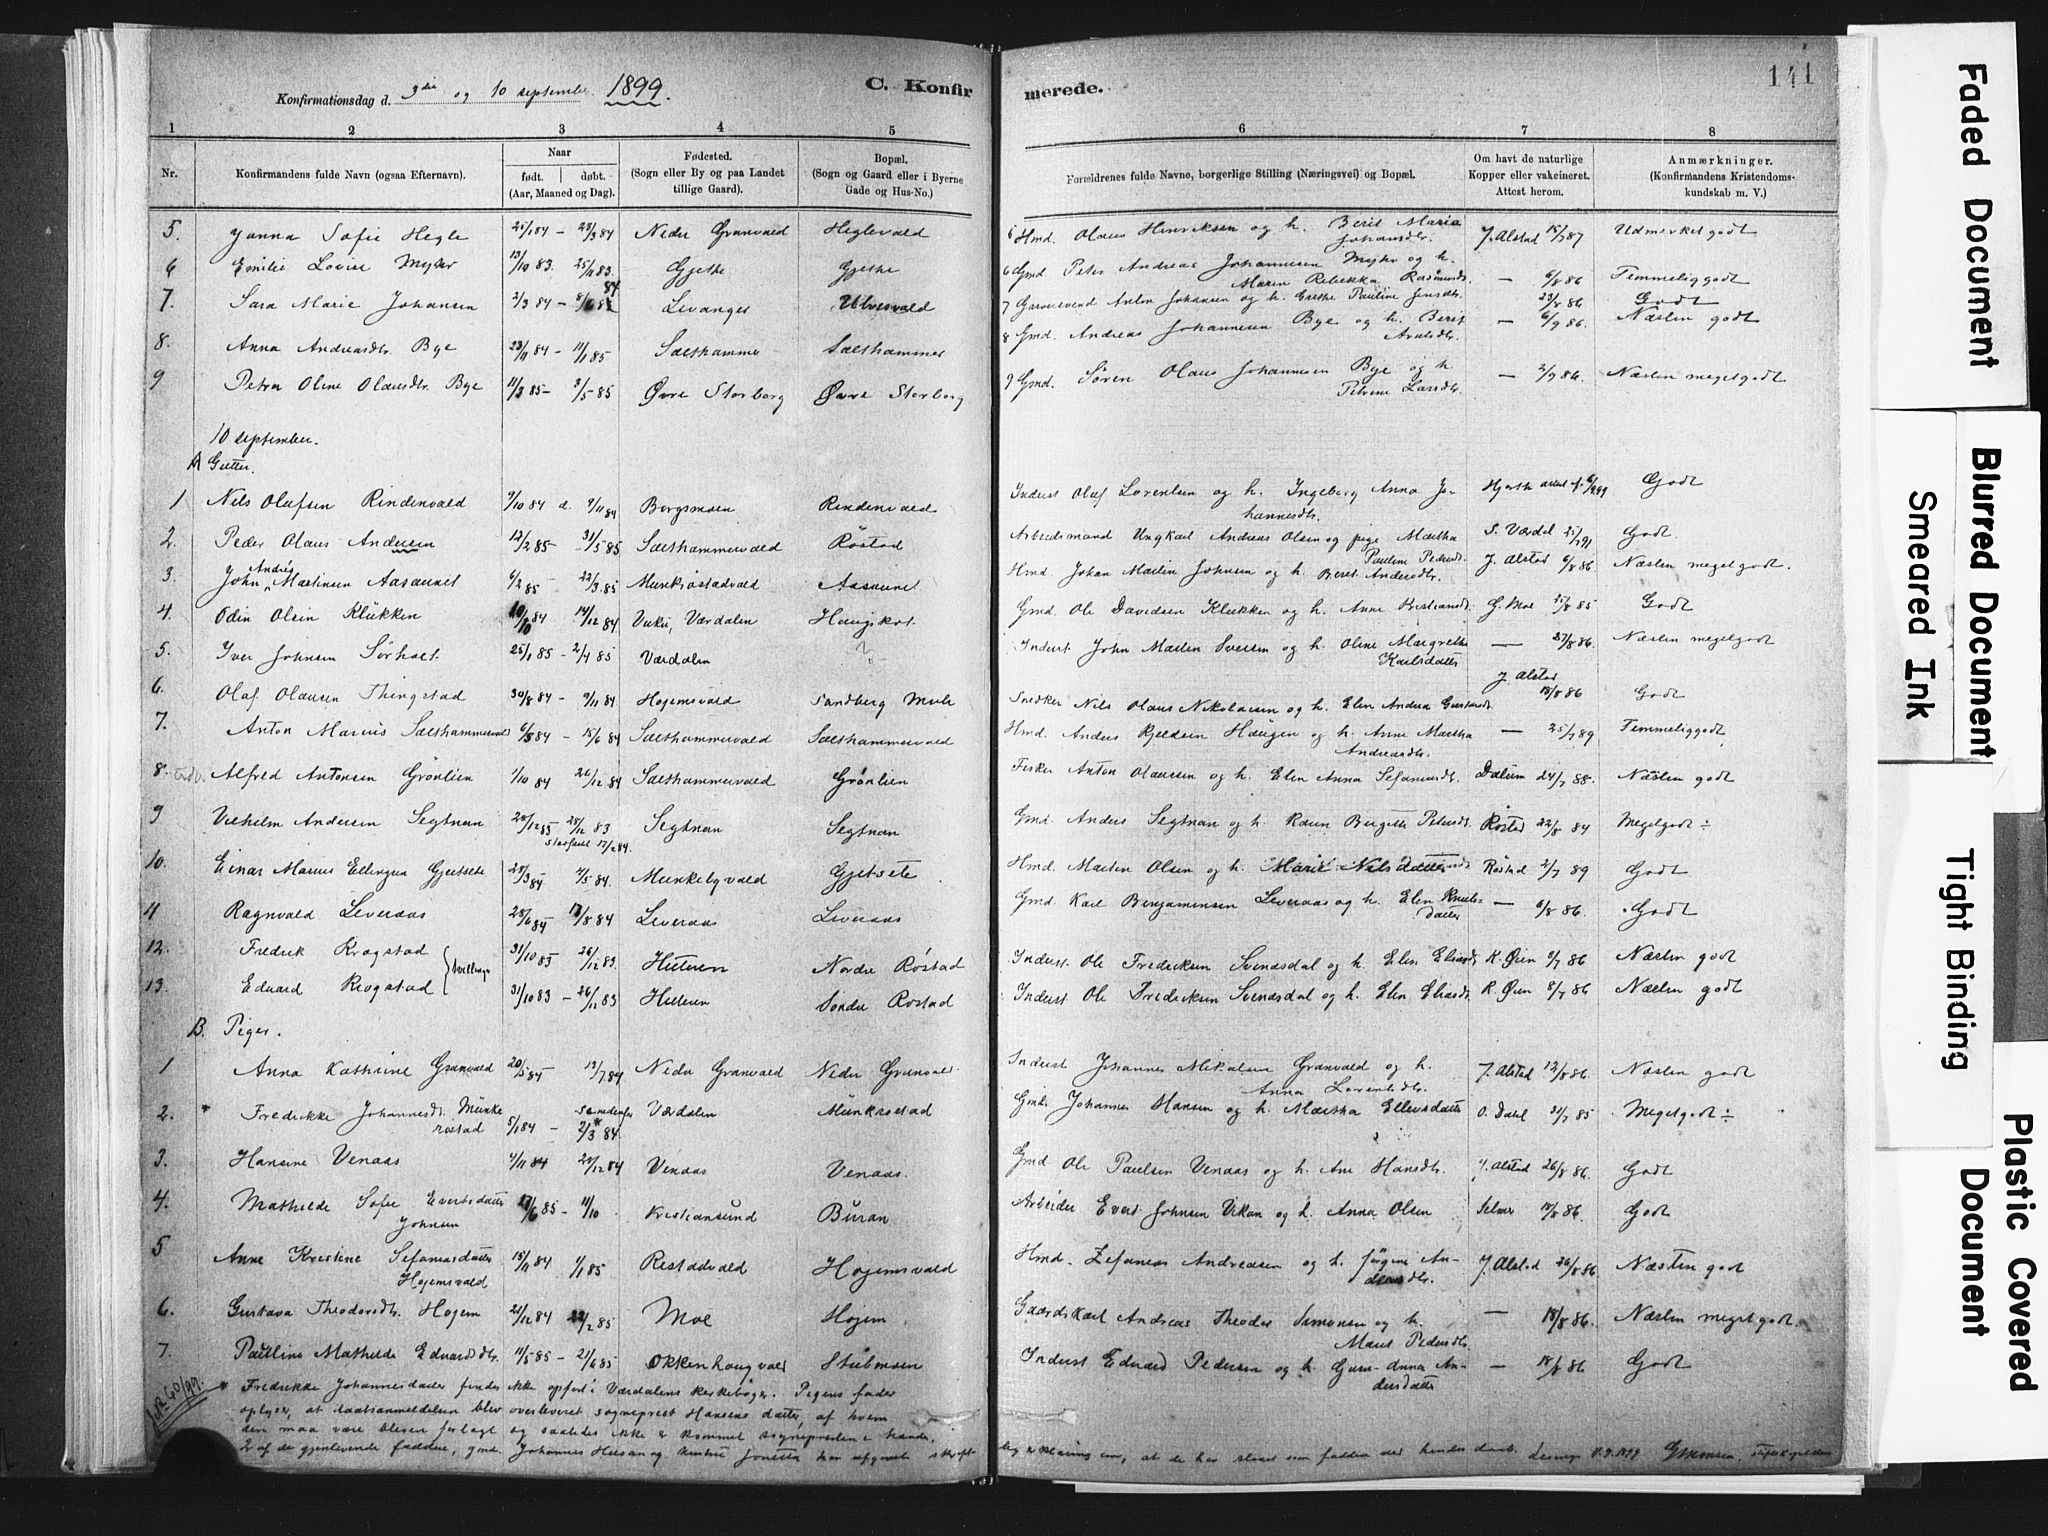 Konfirmationsdag d. 3die og 10 september 1899.
C. Konfirmerede.
141
1 2 3 4 5 6 7 8
Nr.
Konfirmandens fulde Navn (ogsaa Efternavn).
Naar
født. døbt.
(Aar, Maaned og Dag).
Fødested.
(Sogn eller By og paa Landet
tillige Gaard).
Bopæl.
(Sogn og Gaard eller i Byerne
Gade og Hus-No.)
Forældrenes fulde Navne, borgerlige Stilling (Næringsvei) og Bopæl.
Om havt de naturlige
Kopper eller vakcineret.
Attest herom.
Anmærkninger.
(Konfirmandens Kristendoms-
kundskab m. V.)
5. Janna Sofie Hegle 25/1 84 – 23/3 84 Nedre Granvald Heglevald 5 Hmd. Olaus Henriksen og h. Berit Maria Johansdtr. J. Alstad 15/7 87 Udmerket godt
6 Emilie Lovise Myhr 13/10 83. 25/11 83. Gjethe Gjethe 6 Gmd Peter Andreas Johannesen Myhr og h. Maren Rebekka Rasmusdt. — 6/8 86 Temmelig godt
7. Sara Marie Johansen 2/3 84 – 8/6 84 Levanger 7 Garversvend Anton Johansen og h. Grethe Pauline Jensdtr. 23/8 86 Godt
8. Anna Andreasdtr. Bye 23/11 84 – 11/1 85 Salthammer Salthammer 8 Gmd. Andreas Johannesen Bye og h. Berit — 6/9 86. Næsten godt
9 Petra Oline Olausdtr. Bye 11/3 85 – 3/5 85 Øvre Storborg Øvre Storborg 9 Gmd. Søren Olaus Johannesen Bye og h. Petrine Larsdtr. — 2/9 86. Næsten meget godt
10 september.
A Gutter.
1 Nels Olafsen Rindenvald 9/10 84 d. 9/11 84 Borgsmoen Rindenvald Inderst Olaf Lorentsen og h. Ingeborg Anna Johannesdtr. Godt
2. Peder Olaus Andersen 12/2 85 – 31/5 85 Salthammervald Røstad Arbeidsmand Ungkarl Andreas Olsen og pige Martha Pauline Pedersdt. S. Værdal 25/7 91 Godt.
3. John Andreas Martinsen Aasaunet 6/2 85 22/3 85 Munkrøstadvald Aasaunet Hmd. Johan Martin Johnsen og h. Beret Andersdtr. J. Alstad 6/8 86 Næsten meget godt.
4. Odin Olsen Klükken 10/10 84 14/12 84 Vuku, Værdalen Haugskot Gmd. Ole Davidsen Klukken og h. Anne G. Moe 25/8 85 Godt
5. Iver Johnsen Sørholt 25/1 85 – 2/4 85 Værdalen ? Inderst. John Martin Iversen og h. Oline Margrethe Karlsdatter — 27/8 86 Næsten meget godt
6. Olaf Olausen Thingstad 30/8 84 – 9/11 84 Hojemsvald Sandberg Snedker Nils Olaus Nikolaisen og h. Elen Andrea J. Alstad 18/8 86 Godt
7. Anton Marius Salthammervald 6/5 84 – 15/6 84 Salthammervald Salthammervald Hmd. Anders Kjeldsen Haugen og h. Anne Martha Andreasdtr. — 25/7 89 Temmelig godt
8. Alfred Antonsen Grönlien 1/10 84 26/12 84 Salthammervald Grönlien Fisker Anton Olaussen og h. Elen Anna Sefaniasdtr. Dalum 24/7 88. Næsten godt
9 Vilhelm Andersen Segtnan 20/12 83 28/12 83 stadfæstet 17/2 84. Segtnan Segtnan Gmd. Anders Segtnan og h. Karen Bergitte Petersdt. Røstad 22/8 84 Meget godt ÷
10. Einar Marius Ellingsen Gjetsete 20/3 84 4/5 84. Munkebyvald Gjetsete Hmd. Martin Olsen og h. Marie Nilsdatter Røstad 2/7 89 Godt
11 Ragnvald Leveraas 28/6 84 17/8 84 Leveraas Leveraas Gmd Karl Benjaminsen Leveraas og h. Elen Knutsdatter — 6/8 86. Godt
12. Fredrik Krogstad 31/10 83 26/12 83. Hutern Nordre Røstad Inderst. Ole Fredriksen Svenæsdal og h. Elen Eliasdt. K. Øien 8/7 86 Næsten godt
tvillinger
13. Edvard Krogstad 31/10 83 – 26/12 83 Hutern Søndre Røstad Inderst Ole Fredriksen Svenæsdal og h. Elen Eliasdt. K. Øien 8/7 86 Næsten godt
B. Piger.
1 Anna Kathrine Granvald 20/5 84 13/7 84 Nedre Granvald Nedre Granvald Inderst Johannes Mikalsen Granvald og h. Anna Lorentsdtr. J. Alstad 12/8 86. Næsten godt
2. * Fredrikke Johannesdt. Munkrøstad 5/1 84 – se nedenfor * 2/3 84. Værdalen Munkrøstad Gmd. Johannes Hansen og h. Martha Ellevsdatter O. Dahl 31/7 85 Meget godt ÷
3. Hansine Venaas 4/11 84 28/12 84 Venaas Venaas. Gmd Ole Paulsen Venaas og h. Ane Hansdtr. J. Alstad 26/8 86. Godt
4. Mathilde Sofie Evertsdatter Johnsen 27/6 85 – 11/10 Kristiansund Buran Arbeider Evert Johnsen Vikan og h. Anna Olsen Selmer 18/8 86. Godt
5 Anne Kristine Sefaniasdatter Hojemsvald 15/11 84 1/1 85 Restadvald Hojemsvald Hmd. Zefanias Andreasen og h. Jørgine Andersdtr. J. Alstad 26/8 86 Næsten godt
6. Gustava Theodorsdtr. Hojem 21/12 84 22/2 85 Moe Hojem Gaardskarl Andreas Theodor Simonsen og h. Marit Pedersdtr. — 18/8 86. Næsten meget godt.
7. Pauline Mathilde Edvardsdtr. 11/5 85 – 21/6 85 Okkenhougvald Stubmoen Inderst Edvard Pedersen og h. Guru-Anna Andersdatter — 18/8 86 Godt
N. 40/99.
* Fredrikke Johannesdatter findes ikke opført i Værdalens kirkebøger. Pigens fader
oplyser, at daabsanmeldelsen blev overleveret sogneprest Hansens datter, af hvem
den maa være bleven forlagt og saaledes ikke er kommet sognepresten i hænde.
2 af de gjenlevende faddere, gmd. Johannes Hansen og hustru Jonetta har afgivet skriftlig erklæring om, at de har staaet som faddere ved hendes daab. Levanger 11.9.1899
Faded Document
Blurred Document
Smeared Ink
Tight Binding
Plastic Covered Document